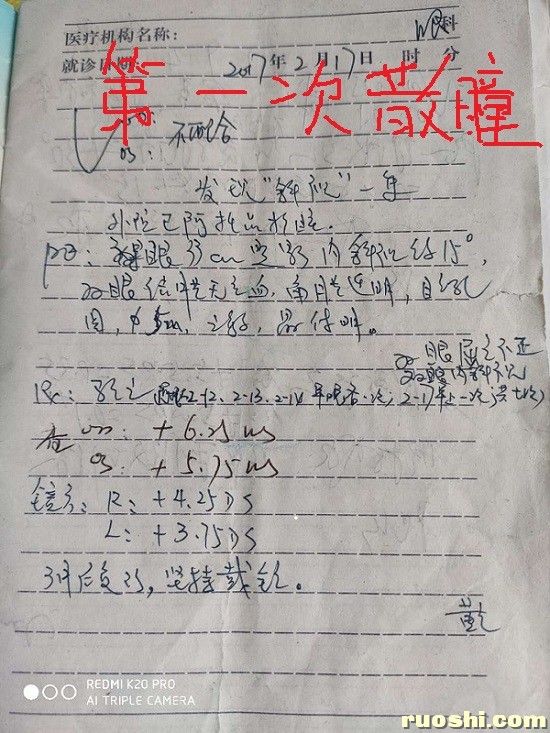 眼科
医疗机构名称:
就诊日期: 2017年2月17日 时 分
第一次散瞳
V OD:
OS: 不配合
发现"斜视"一年
外院已阿托品扩瞳。
PE: 眼33cm 内斜视约15°,
双眼结膜无充血, 角膜透明, 瞳孔
圆, 晶体明。
双眼屈光不正
双眼内斜视
Rx: 2-12、2-13、2-14 早晚各一次, 2-17早上一次(共七次)
OD: +6.25DS
OS: +5.75DS
镜方: R: +4.25DS
L: +3.75DS
3月后复诊, 坚持戴镜。
REDMI K20 PRO
AI TRIPLE CAMERA
ruoshi.com